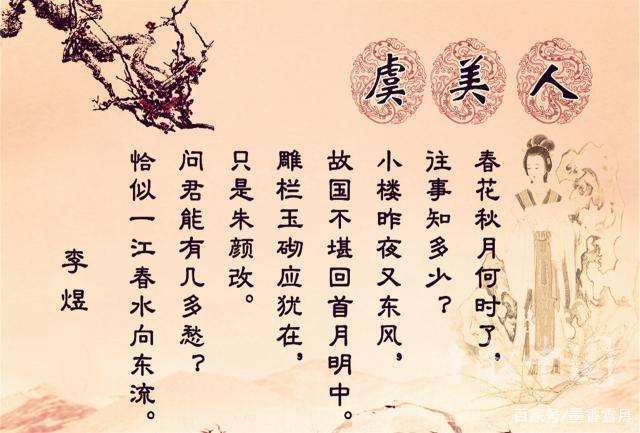 虞美人
春花秋月何时了，
往事知多少？
小楼昨夜又东风，
故国不堪回首月明中。
雕栏玉砌应犹在，
只是朱颜改。
问君能有几多愁？
恰似一江春水向东流。
李煜
百家号/墨香月